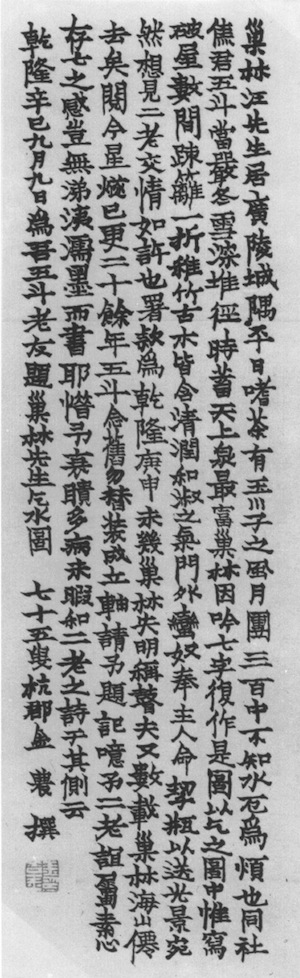 巢林汪先生居廣陵城隅平日嗜茶有玉川子之風月團三百中不知水厄為煩也同社
焦君五斗當嚴冬雪深堆徑時蓄天上泉最富巢林因吟七字復作是圖以乞之圖中惟寫
破屋數間疎籬一折稚竹古木皆含清潤和淑之氣門外蠻奴奉主人命挈瓶以送光景宛
然想見二老交情如許也署款為乾隆庚申未幾巢林失明稱瞽夫又數載巢林海山僊
去矣閱今星燧已更二十餘年五斗念舊勿替裝成立軸請予題記噫予二老詎屬素心
存亡之感豈無涕洟濡墨而書耶憯予衰聵多病未暇和二老之詩于其側云
乾隆辛巳九月九日為吾五斗老友題巢林先生乞水圖 七十五叟杭郡金農撰